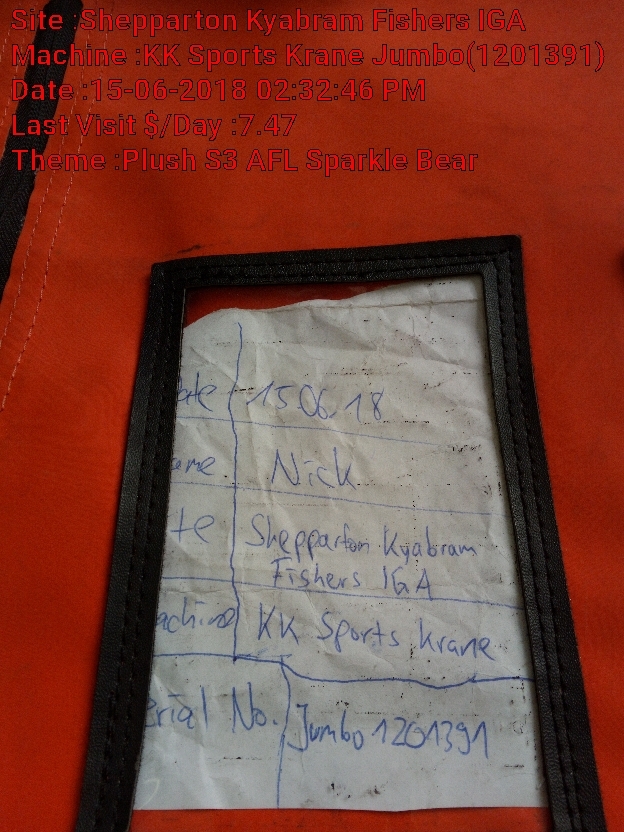 Site :Shepparton Kyabram Fishers IGA
Machine :KK Sports Krane Jumbo(1201391)
Date :15-06-2018 02:32:46 PM
Last Visit $/Day :7.47
Theme :Plush S3 AFL Sparkle Bear
ate 15.06.18
ame Nick
te Shepparton Kyabram
Fishers IGA
achine KK Sports Krane
erial No. Jumbo 1201391